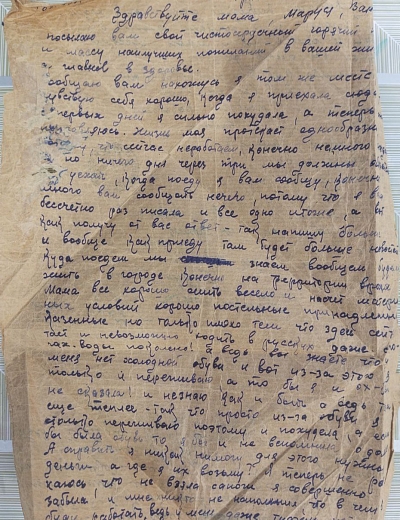 Здравствуйте мама, Маруся, Вар
посылаю вам свой чистосердечный горячий
и массу наилучших пожеланий в вашей жиз
а главное в здоровье.
Сообщаю вам нахожусь я том же месте
чувствую себя хорошо, когда я приехала сюда
первых дней я сильно похудала, а теперь
поправляюсь. Жизнь моя протекает однообразн
сейчас не работаем, Конечно немного
но ничего дня через три мы должны
уехать, Когда поеду я вам сообщу, Конечно
много вам сообщать нечего, потому что я
бессчетно раз писала и все одно и тоже, а
Как получу от вас ответ - так напишу больше
и вообще Как приеду там будет больше новостей
Куда поедем мы знаем вообщем буд
жить в городе. Конечно на территории враж
Мама все хорошо жить весело и насчет матери
ных условий хорошо постельные принадлеж
Казенные но только плохо тем что здесь
тает и невозможно ходить в русских даже
воды покальни! а ведь вы знаете что
меня нет холодной обуви и вот из-за этого
только и переживаю а то бы я и ох
не сказала! и незнаю как и быть а ведь
еще теплее - так что просто из-за обуви
столько переживаю поэтому и похудела а
бы была обувь то я и не вспомнила о
А справить я никак немогу для этого нужно
деньги а где я их возьму? я теперь не ра
каюсь что не взяла сапоги я совершенно
забыла! и мне никто не напомнил то в чем
буду работать, ведь у меня даже